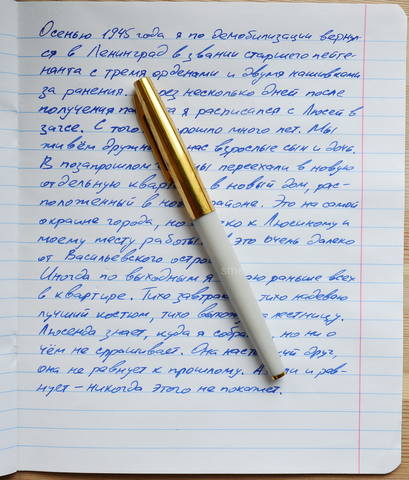 Осенью 1945 года я по демобилизации вернул-
ся в Ленинград в звании старшего лейте-
нанта с тремя орденами и двумя нашивками
за ранения. через несколько дней после
получения я расписался с Люсей в
загсе. С того прошло много лет. Мы
живём дружно нас взрослые сын и дочь.
В позапрошлом мы переехали в новую
отдельную квартиру в новый дом, рас-
положенный в новом районе. Это на самой
окраине города, но к Люсиному и
моему месту работы. это очень далеко
от Васильевского острова
Иногда по выходным я раньше всех
в квартире. Тихо завтракаю тихо надеваю
лучший костюм, тихо выхожу лестницу.
Люсенда знает, куда я собрался, но ни о
чём не спрашивает. Она настоящий друг,
она не ревнует к прошлому. А если и рев-
нует - никогда этого не покажет.